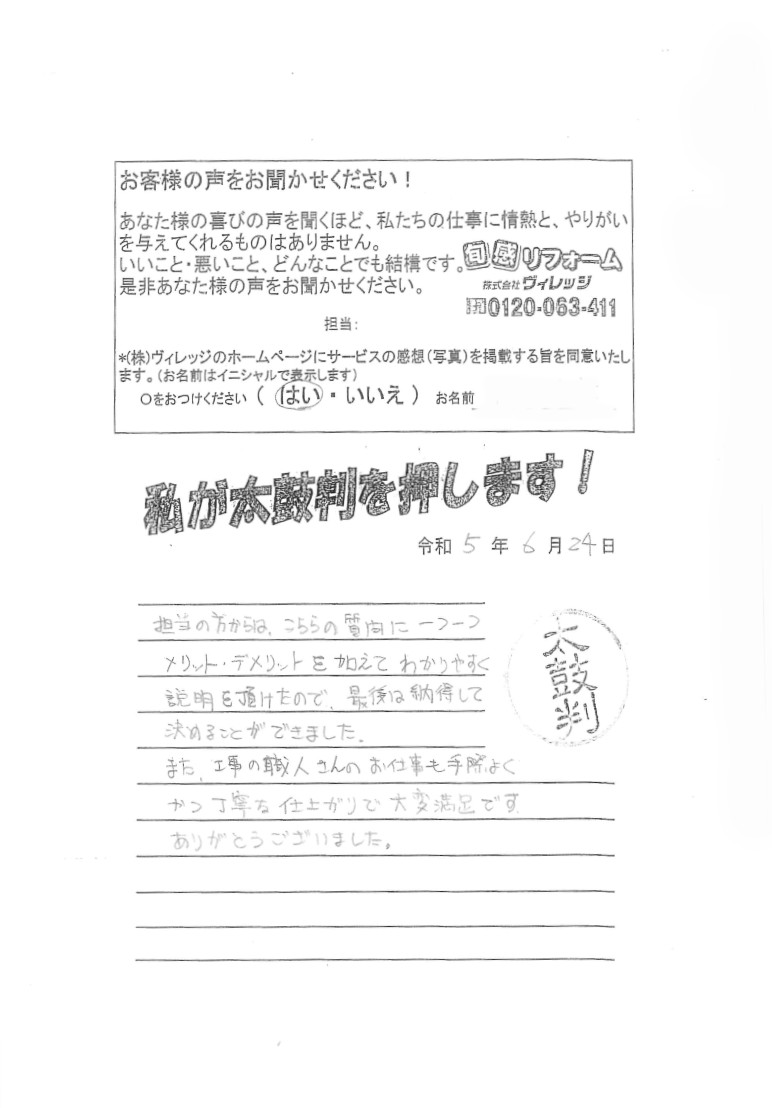 お客様の声をお聞かせください！
あなた様の喜びの声を聞くほど、私たちの仕事に情熱と、やりがい
を与えてくれるものはありません。
いいこと・悪いこと、どんなことでも結構です。
是非あなた様の声をお聞かせください。
旬感リフォーム
株式会社ヴィレッジ
0120-063-411
担当：
*(株)ヴィレッジのホームページにサービスの感想（写真）を掲載する旨を同意いたし
ます。（お名前はイニシャルで表示します）
○をおつけください（ はい ・ いいえ ） お名前
私が太鼓判を押します！
令和 5 年 6 月 24 日
担当の方からは、こちらの質問に一つ一つ
メリット・デメリットを加えてわかりやすく
説明を頂けたので、最後は納得して
決めることができました。
また、工事の職人さんのお仕事も手際よく
かつ丁寧な仕上がりで大変満足です
ありがとうございました。
太鼓判